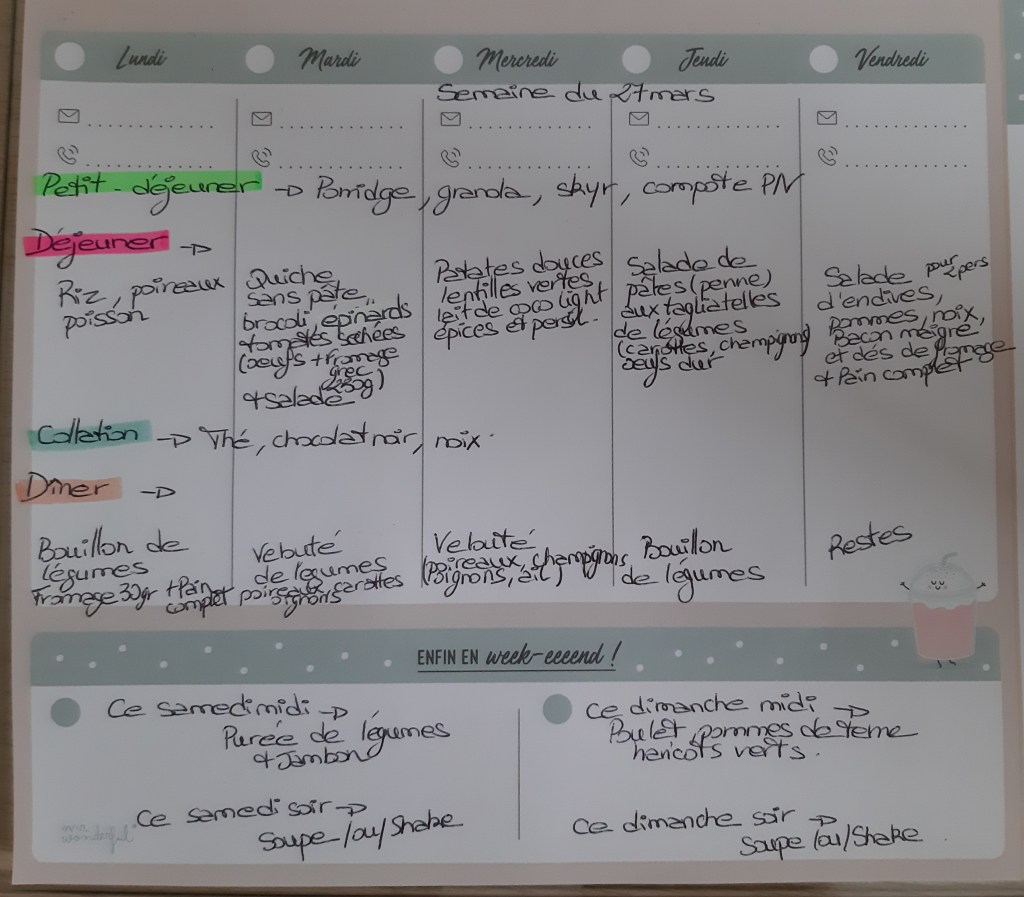 Lundi
Mardi
Mercredi
Jeudi
Vendredi
Semaine du 27 mars
Petit-déjeuner → Porridge, granola, skyr, compote PN
Déjeuner →
Riz, poireaux
poisson
Quiche
sans pâte,
brocoli, épinards
tomates séchées
(oeufs + fromage
grec
(230g)
+ Salade
Patates douces
lentilles vertes
lait de coco light
épices et persil.
Salade de
pâtes (penne)
aux tagliatelles
de légumes
(carottes, champignons)
oeufs dur
Salade pour 2 pers
d'endives,
pommes, noix,
Bacon maigre
et dés de fromage
+ Pain complet
Collation → Thé, chocolat noir, noix.
Dîner →
Bouillon de
légumes
Fromage 30gr + Pain
complet
Velouté
de légumes
poireaux, carottes
oignons
Velouté
(poireaux, champignons
oignons, ail)
Bouillon
de légumes
Restes
ENFIN EN week-eeeend !
Ce samedi midi →
Purée de légumes
+ Jambon
Ce samedi soir →
Soupe /ou/ Shake
Ce dimanche midi →
Poulet, pommes de terre
haricots verts.
Ce dimanche soir →
Soupe /ou/ Shake